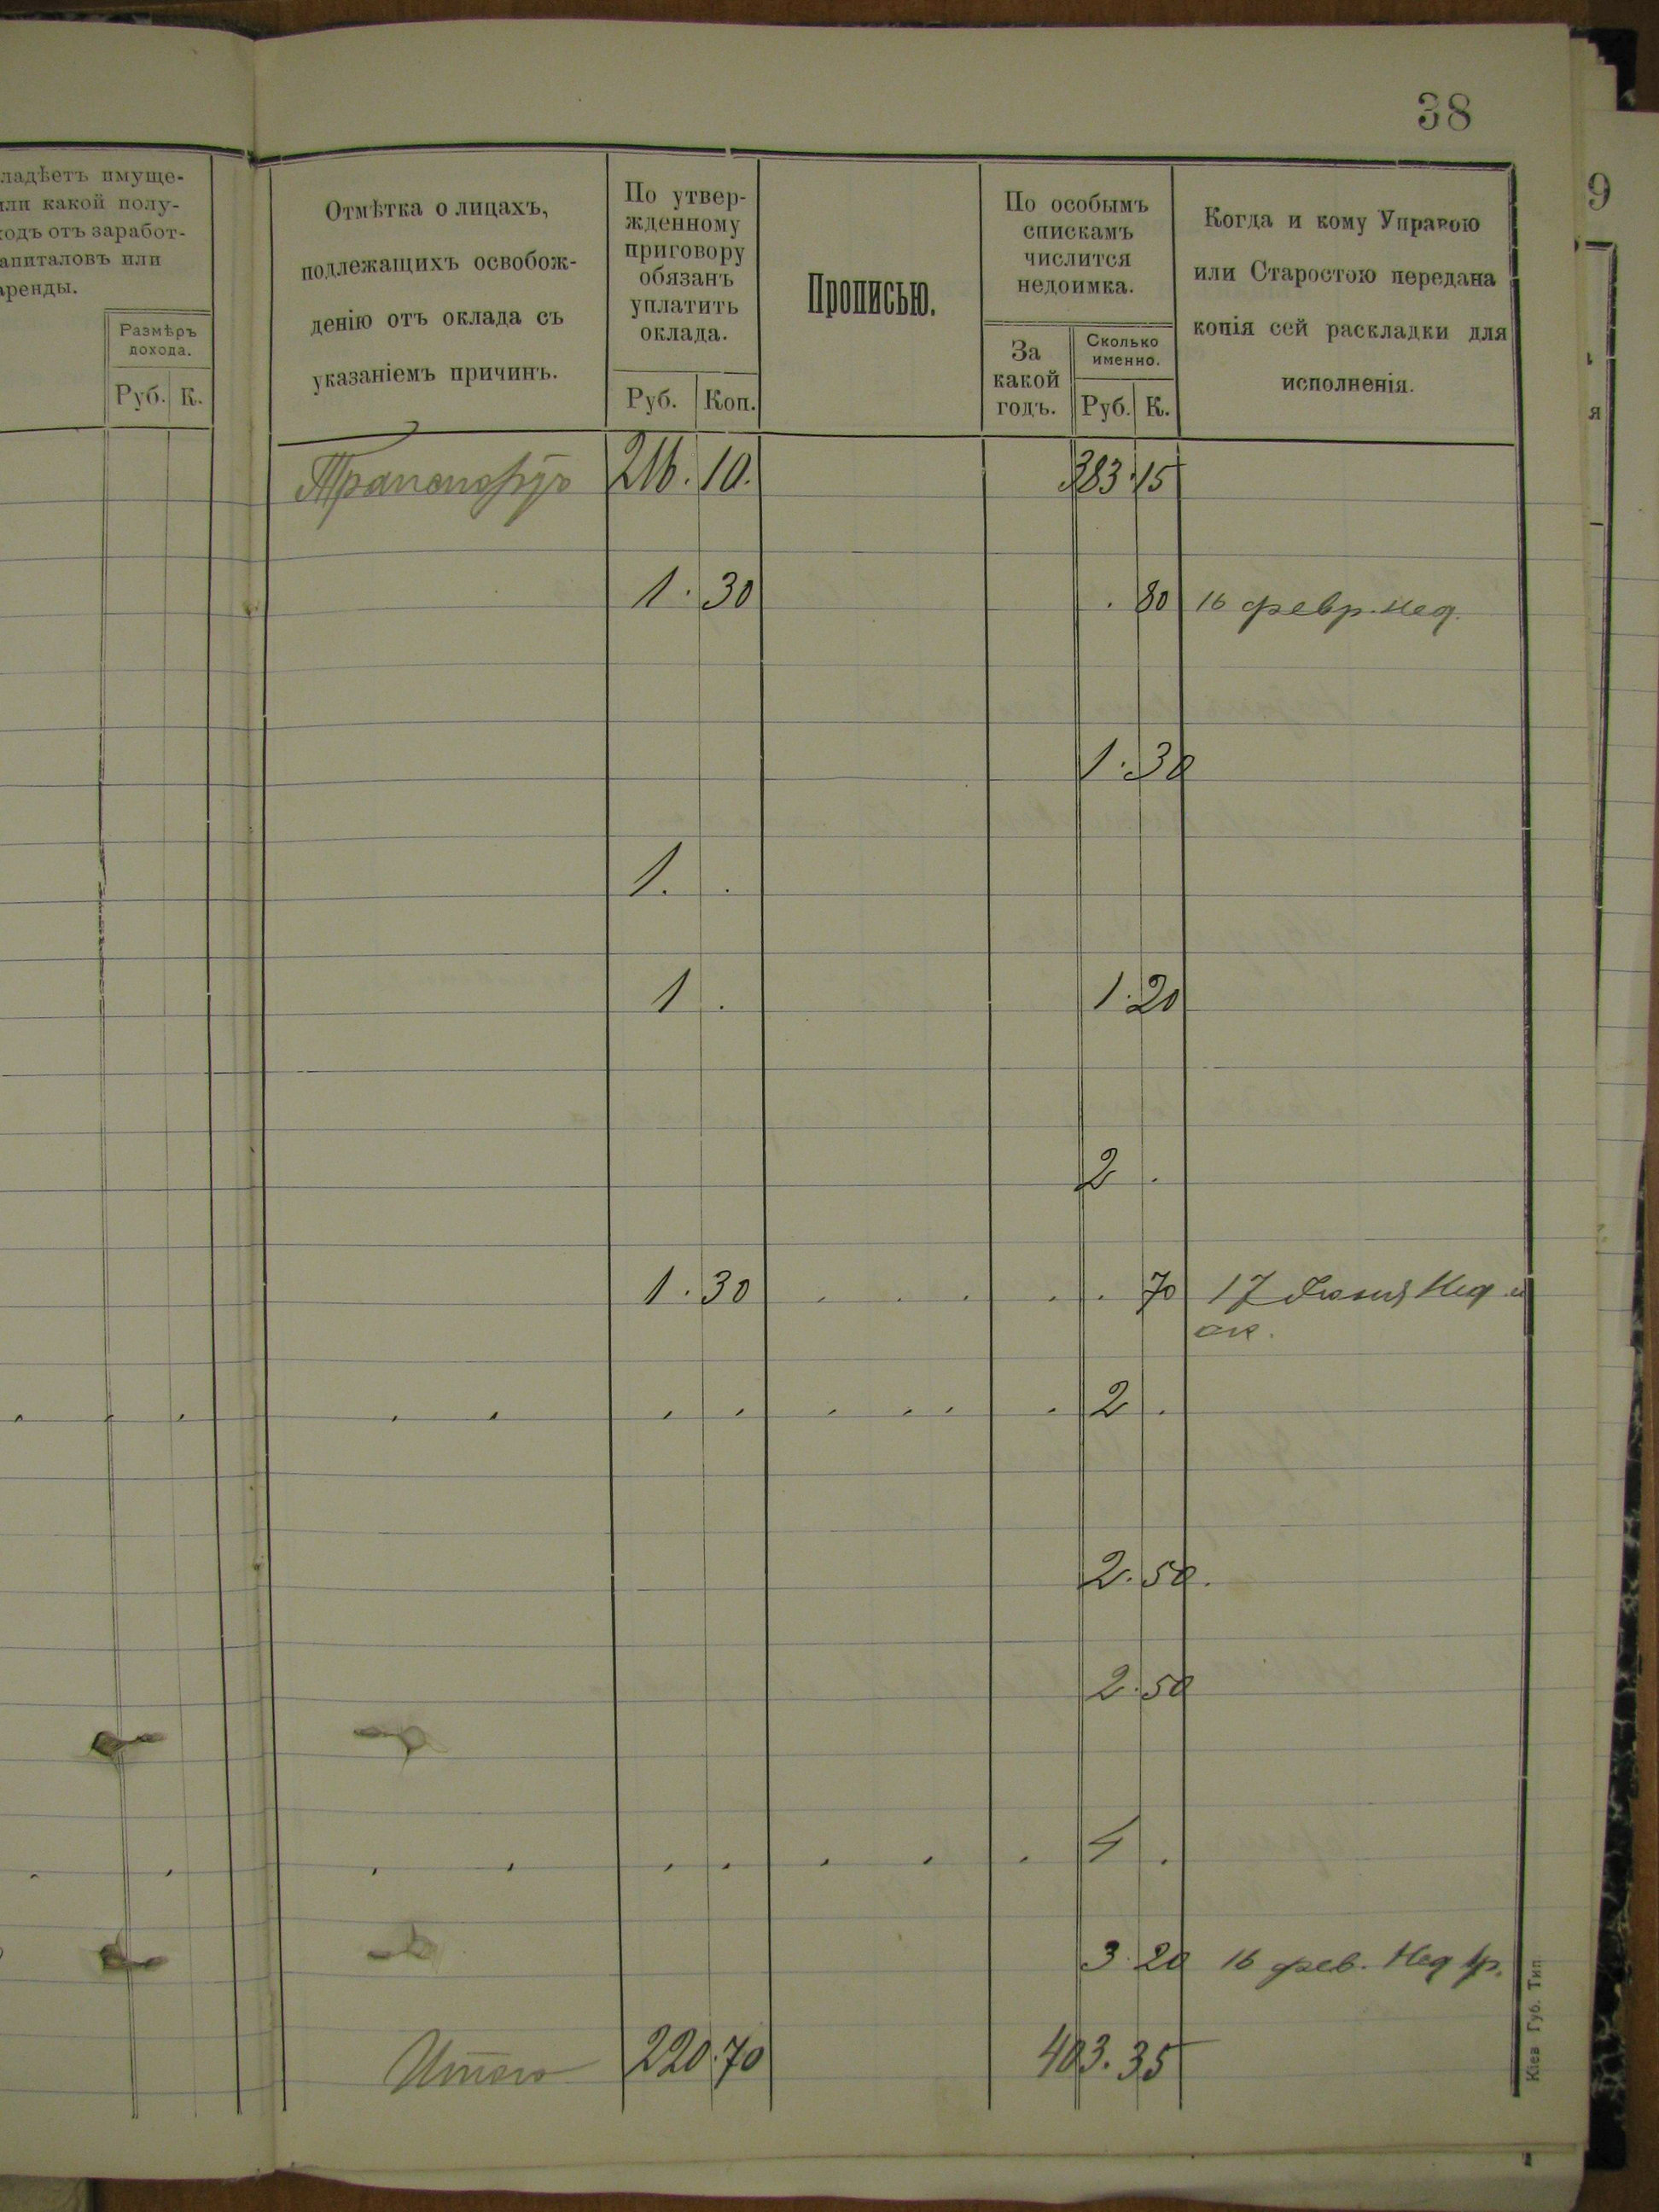 38
9
ладѣетъ имуще-
или какой полу-
ходъ отъ заработ-
апиталовъ или
аренды.
Размѣръ
дохода.
Руб. К.
Отмѣтка о лицахъ,
подлежащихъ освобож-
денію отъ оклада съ
указаніемъ причинъ.
По утвер-
жденному
приговору
обязанъ
уплатить
оклада.
Руб. Коп.
Прописью.
По особымъ
спискамъ
числится
недоимка.
За
какой
годъ.
Сколько
именно.
Руб. К.
Когда и кому Управою
или Старостою передана
копія сей раскладки для
исполненія.
я
Транспортъ 216. 10. 383 15
1. 30 . 80 16 февр. нед.
1. 30
1. .
1 . 1. 20
2 .
1. 30 . . . . . 70 17 Іюня Нед. и
ок.
2 .
2. 50.
2. 50
4 .
3. 20 16 фев. Нед
Итого 220. 70 403. 35
Кіев Губ. Тип